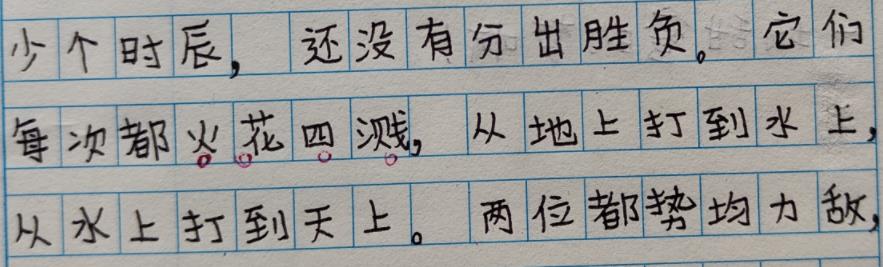 少个时辰，还没有分出胜负。它们
每次都火花四溅，从地上打到水上，
从水上打到天上。两位都势均力敌，